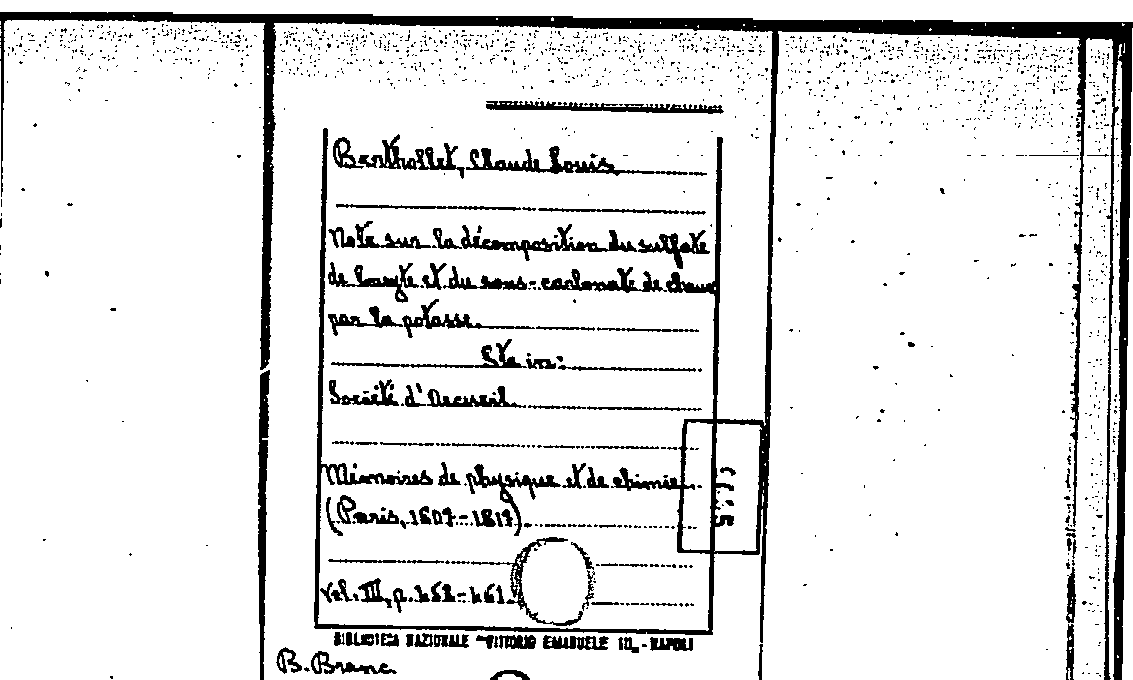 Berthollet, Claude Louis.
Note sur la décomposition du sulfate
de baryte et du sous-carbonate de chaux
par la potasse.
Sta in:
Société d'Arcueil.
Mémoires de physique et de chimie.
(Paris, 1807-1817).
vol. III, p.
BIBLIOTECA NAZIONALE "VITTORIO EMANUELE III" - NAPOLI
B. Branc.